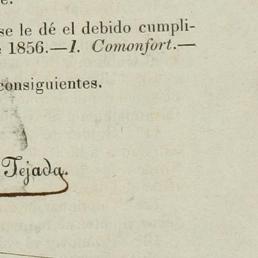 se le dé el debido cumpli-
1856.—I. Comonfort.—
consiguientes.
Tejada.